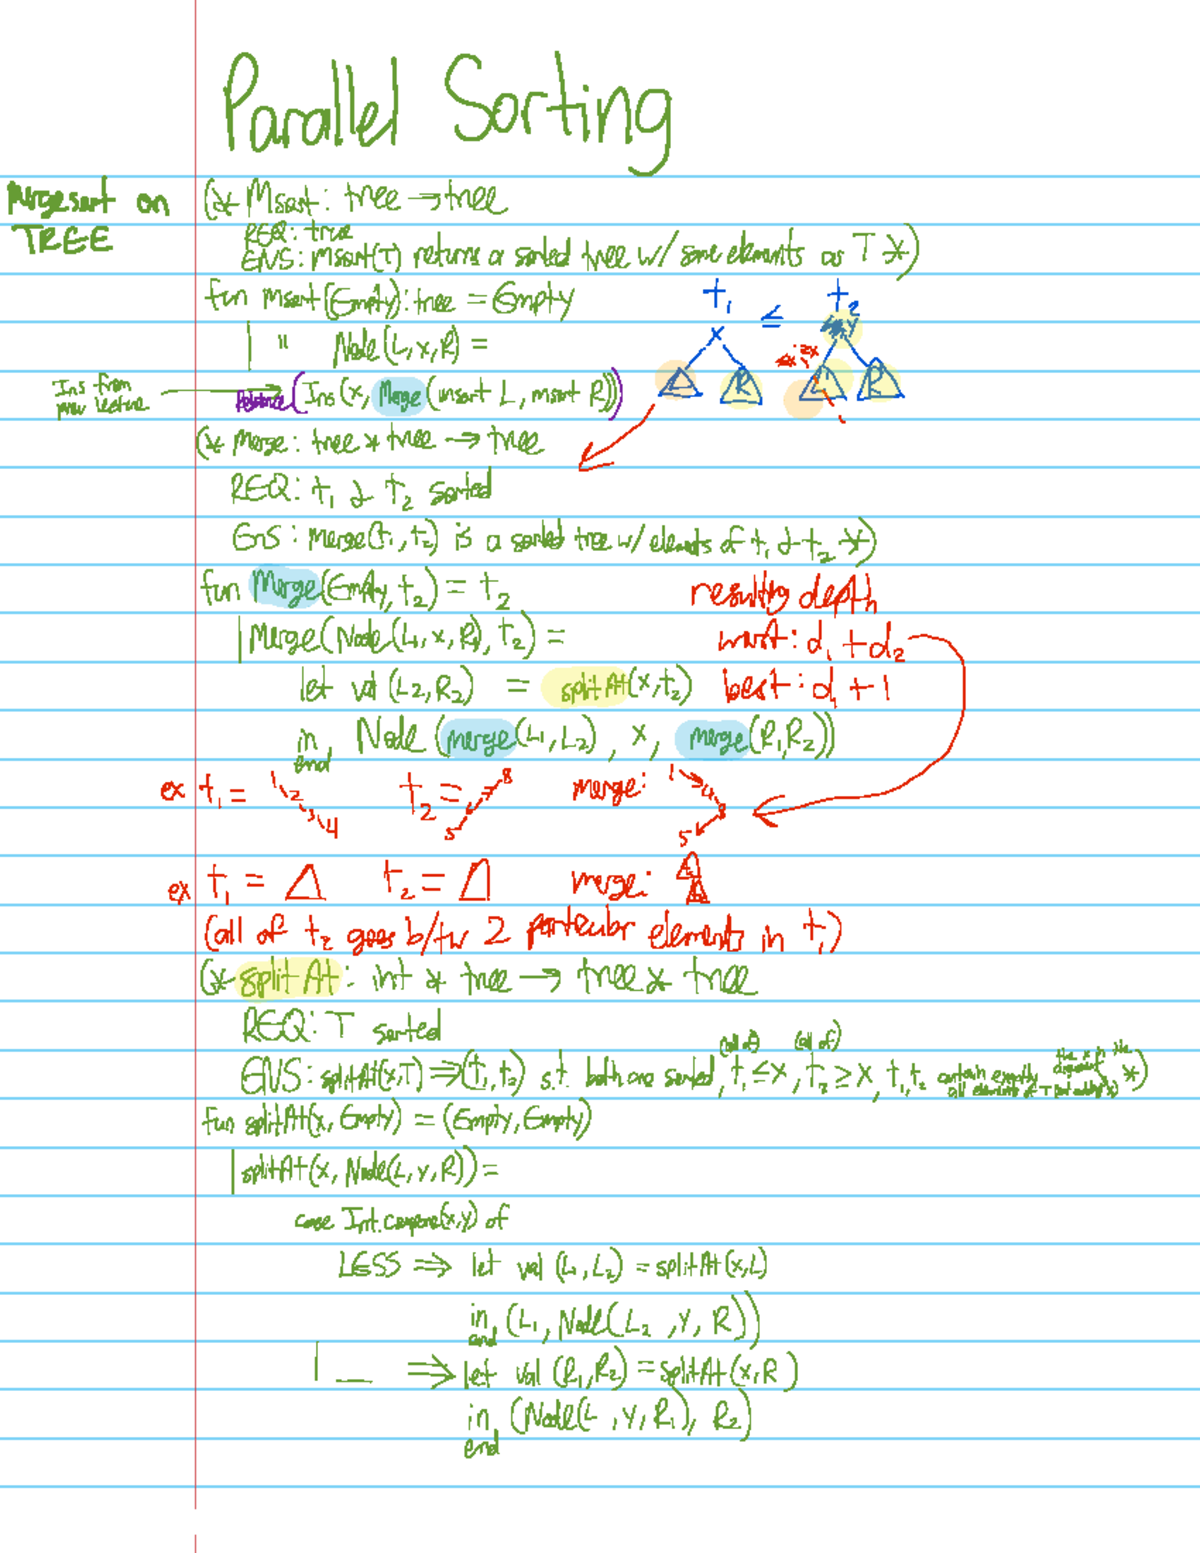 Parallel Sorting
Mergesort on
TREE
(* Msort: tree → tree
REQ: true
ENS: msort(T) returns a sorted tree w/ same elements as T *)
fun msort(Empty): tree = Empty
| " Node(L, x, R) =
Ins from
prev lecture
Rebalance(Ins(x, Merge(msort L, msort R)))
t₁ ≤ t₂
x
y
L R L R
(* Merge: tree * tree → tree
REQ: t₁ & t₂ sorted
ENS: merge(t₁, t₂) is a sorted tree w/ elements of t₁ & t₂ *)
fun Merge(Empty, t₂) = t₂
| Merge(Node(L₁, x, R₁), t₂) =
let val (L2, R₂) = splitAt(x, t₂)
in Node (merge(L₁, L₂), x, merge(R₁, R₂))
end
resulting depth
worst: d₁ + d₂
best: d₁ + 1
ex t₁ = 1 2 3 4 t₂ = 8 5 merge: 1 4 8 5
ex t₁ = △ t₂ = △ merge:
(all of t₂ goes b/tw 2 particular elements in t₁)
(* splitAt: int * tree → tree * tree
REQ: T sorted
(all of) (all of)
ENS: splitAt(x,T) ⇒ (t₁, t₂) s.t. both are sorted, t₁ ≤ x, t₂ ≥ x, t₁, t₂ contain exactly
all elements of T *)
fun splitAt(x, Empty) = (Empty, Empty)
| splitAt(x, Node(L, y, R)) =
case Int.compare(x,y) of
LESS ⇒ let val (L₁, L₂) = splitAt(x, L)
in (L₁, Node(L₂, y, R))
end
| _ ⇒ let val (R₁, R₂) = splitAt(x, R)
in (Node(L, y, R₁), R₂)
end